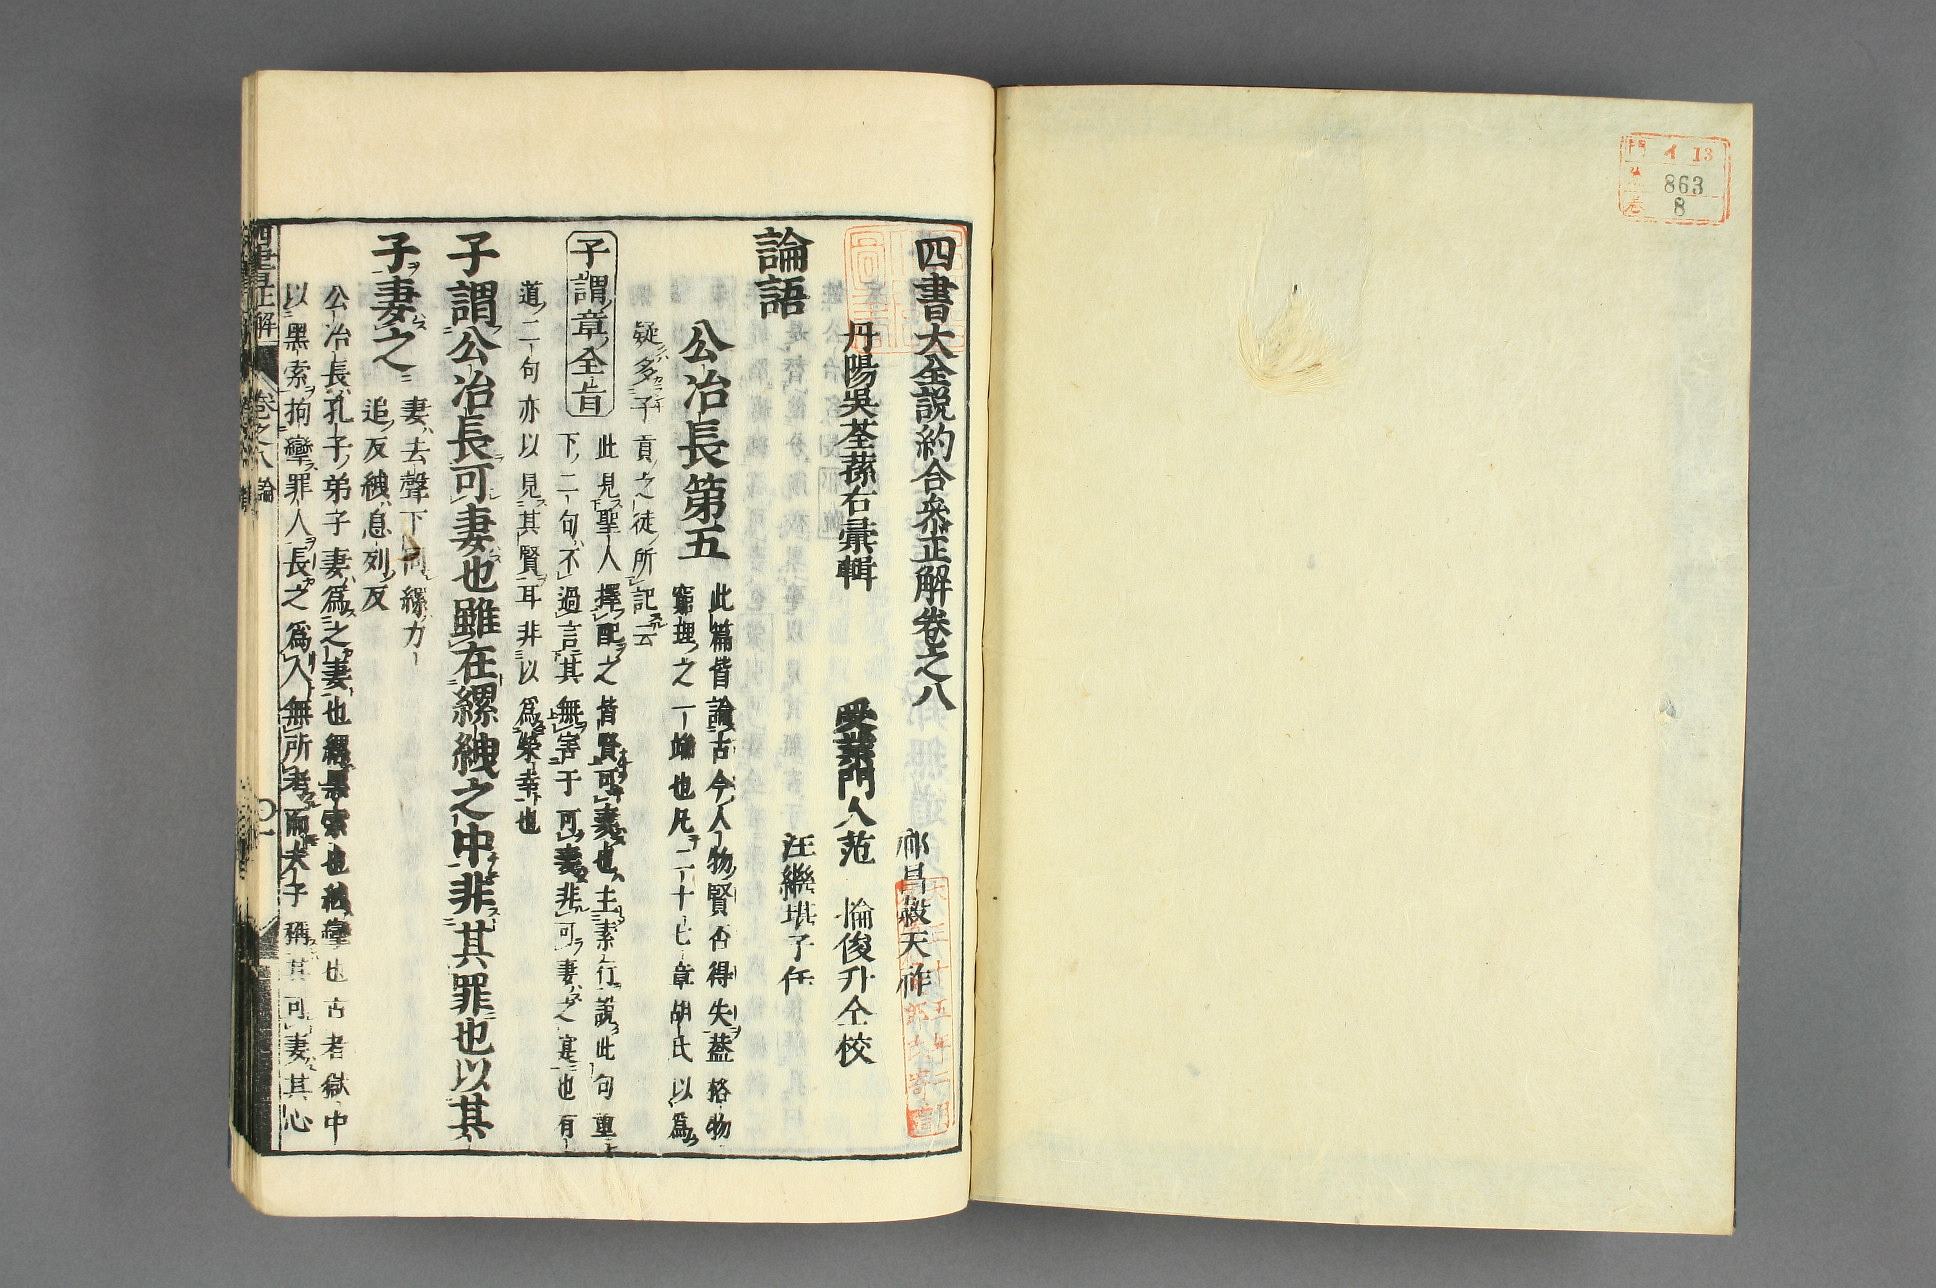 門 イ 13
863
8
四書大全説約合參正解卷之八
丹陽吳荃蓀右彙輯
受業門人范 掄俊升仝校
汪繼堪子任
論語
公冶長第五
此篇皆論古今人物賢否得失蓋格物
窮理之一端也凡二十七章胡氏以爲
疑多子貢之徒所記云
子謂章全旨
此見聖人擇配之皆賢可妻也主素行說此句重
下二句不過言其無害于可妻非可妻之寔也有
道二句亦以見其賢耳非以爲榮幸也
子謂公冶長可妻也雖在縲絏之中非其罪也以其
子妻之
妻去聲下同縲力
追反絏息列反
公冶長孔子弟子妻爲之妻也縲黑索也絏攣也古者獄中
以黑索拘攣罪人長之爲人無所考而夫子稱其可妻其心
四書正解
卷之八 論